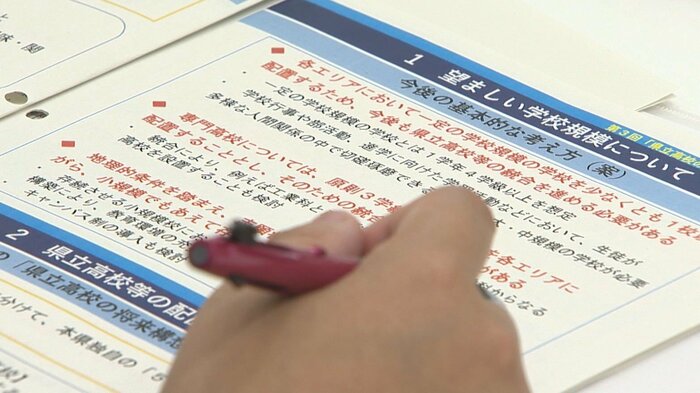 第3回「県立高校
1 望ましい学校規模について
今後の基本的な考え方（案）
◆ 各エリアにおいて一定の学校規模の学校を少なくとも1校
配置するため、今後も県立高校等の統合を進める必要がある
・一定の学校規模の学校とは1学年4学級以上を想定
・学校行事や部活動、進学に向けた学習活動などにおいて、生徒が
多様な人間関係の中で切磋琢磨できる 大、中規模の学校が必要
◆ 専門高校については、原則3学
配置することとし、そのための統 各エリアに
がある
・統合により、例えば工業科と 科からなる
高校を設置することも検討
◆ 地理的条件を踏まえ、
がら、小規模でもあえて
・存続させる小規模校に
構築により、教育環境の
キャンパス制の導入も検討
2 県立高校等の配
の「県立高校の将来構想
分けて、本県独自の「5
味・関